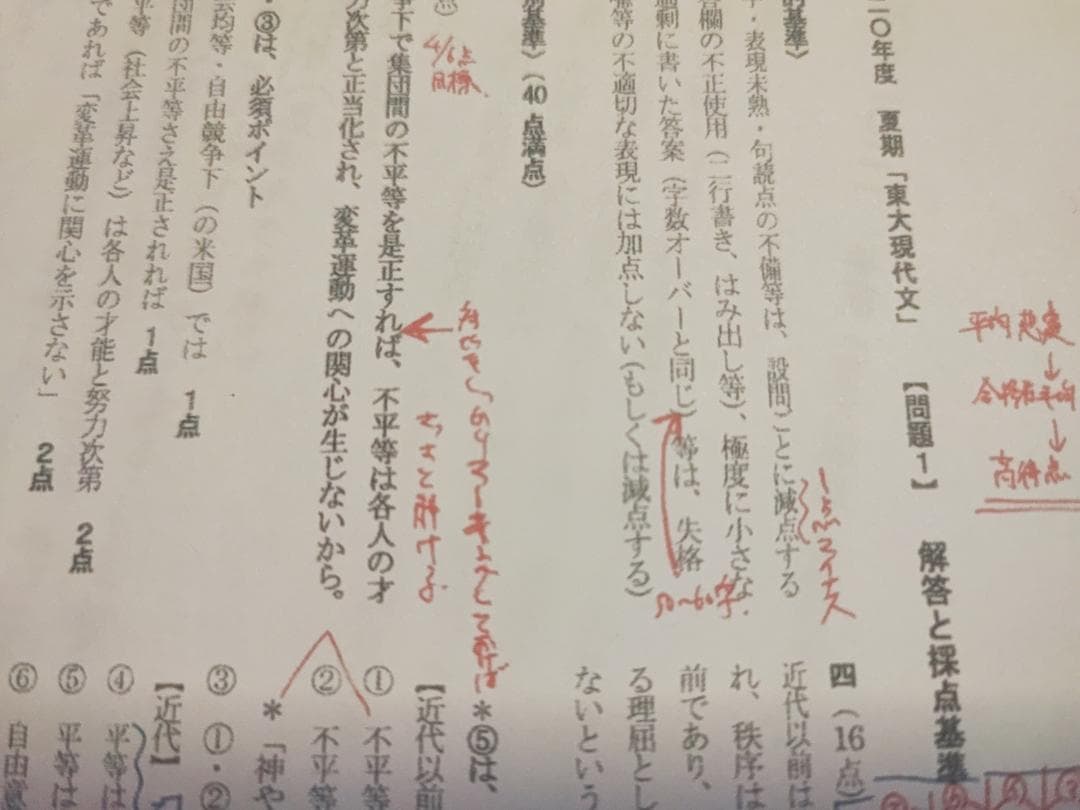 二〇年度 夏期「東大現代文」 【問題1】 解答と採点基準
的基準〉
字・表現未熟・句読点の不備等は、設問ごとに減点する
答欄の不正使用(二行書き、はみ出し等)、極度に小さな
過剰に書いた答案(字数オーバーと同じ)等は、失格
備等の不適切な表現には加点しない(もしくは減点する)
別基準〉(40点満点)
点)
争下で集団間の不平等を是正すれば、不平等は各人の才
力次第と正当化され、変革運動への関心が生じないから。
・③は、必須ポイント
会均等・自由競争下(の米国)では 1点
団間の不平等さえ是正されれば 1点
平等(社会上昇など)は各人の才能と努力次第 2点
であれば「変革運動に関心を示さない」 2点
四(16点)
近代以前は
れ、秩序は
前であり、
る理屈とし
ないという
*⑤は、
【近代以前
① 不平等
② 不平等
*「神や
③ ①・②
【近代】
④ 平等は
⑤ 平等は
⑥ 自由意
平均
↓
合格者平均
↓
高得点
1点マイナス
50〜60字
4/6点
目標
さっさと解ける